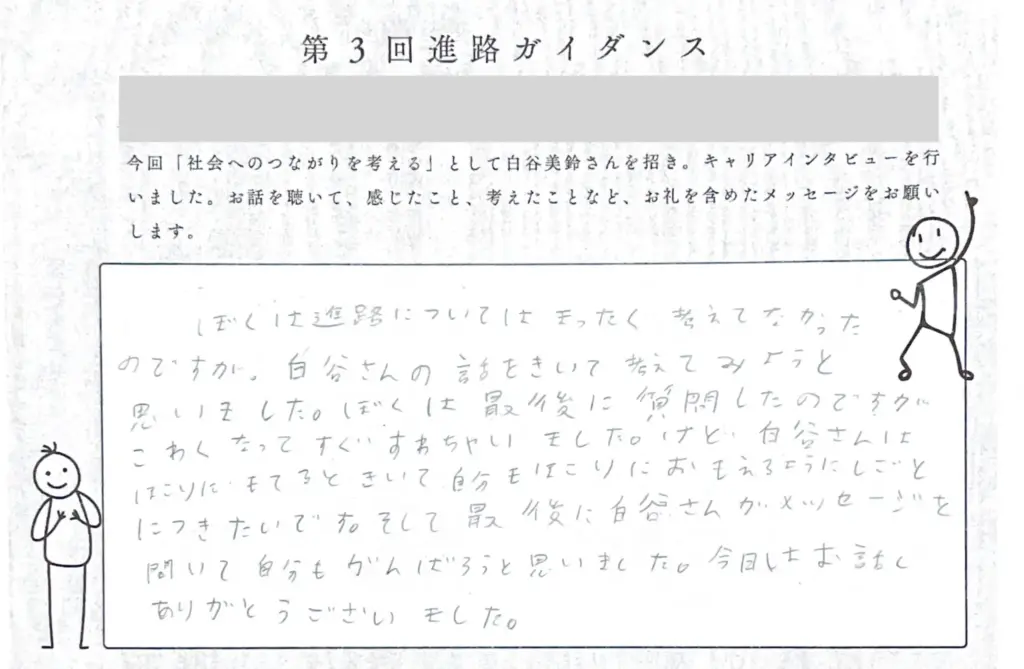 第3回進路ガイダンス
今回「社会へのつながりを考える」として白谷美鈴さんを招き。キャリアインタビューを行
いました。お話を聴いて、感じたこと、考えたことなど、お礼を含めたメッセージをお願い
します。
ぼくは進路についてはまったく考えてなかった
のですが。白谷さんの話をきいて考えてみようと
思いました。ぼくは最後に質問したのですが
こわくなってすぐすわちゃいました。けど白谷さんは
ほこりにもてるときいて自分もほこりにおもえるようにしごと
につきたいです。そして最後に白谷さんがメッセージを
聞いて自分もがんばろうと思いました。今日はお話し
ありがとうございました。